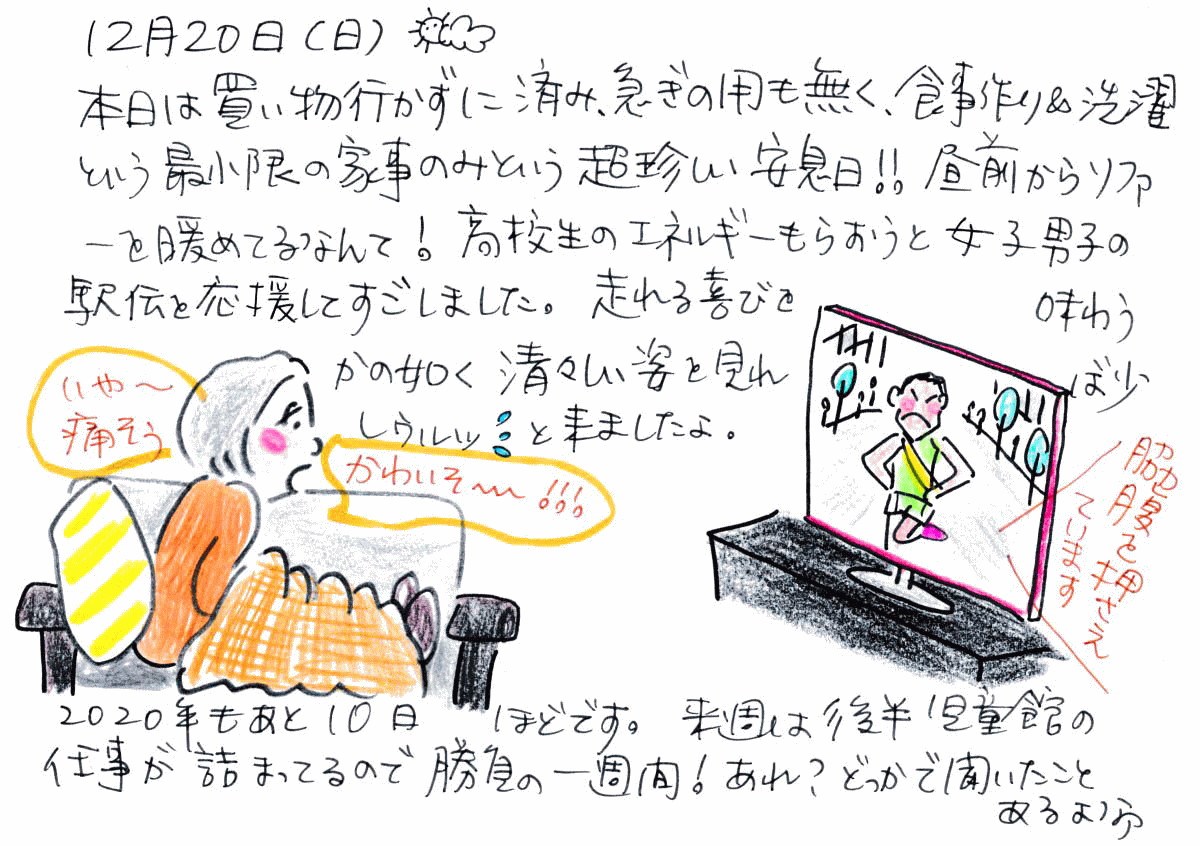 12月20日(日)
本日は買い物行かずに済み、急ぎの用も無く、食事作り&洗濯
という最小限の家事のみという超珍しい安息日!!昼前からソファ
ーを暖めてるなんて!高校生のエネルギーもらおうと女子男子の
駅伝を応援してすごしました。走れる喜びを味わう
かの如く清々しい姿を見れば少
しウルルッと来ましたよ。
いや〜
痛そう
かわいそ〜〜!!!
脇腹を押さえ
ています
2020年もあと10日ほどです。来週は後半児童館の
仕事が詰まってるので勝負の一週間!あれ?どっかで聞いたこと
あるような